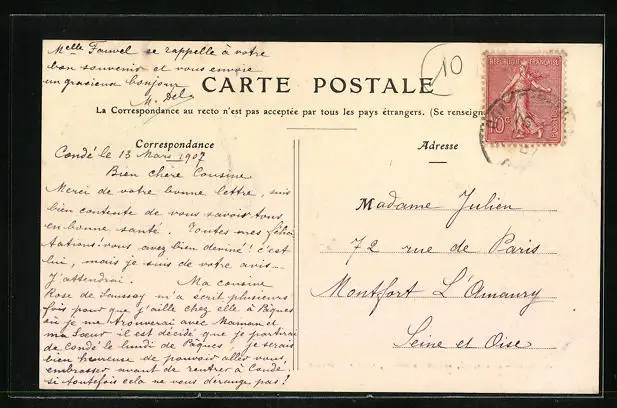 Melle Fauvel se rappelle à votre
bon souvenir et vous envoie
un gracieux bonjour
M. Del
10
CARTE POSTALE
La Correspondance au recto n'est pas acceptée par tous les pays étrangers. (Se renseign
REPUBLIQUE FRANÇAISE
10 c
POSTES
Correspondance
Adresse
Condé le 13 Mars 1907
Bien chère Cousine
Merci de votre bonne lettre, suis
bien contente de vous savoir tous
en bonne santé. Toutes mes félici
tations! vous avez bien deviné! c'est
lui, mais je suis de votre avis...
J'attendrai. Ma cousine
Rose de Saussay m'a écrit plusieurs
fois pour que j'aille chez elle à Pâques
où je me trouverai avec Maman et
ma Sœur il est décidé que je partirai
de Condé le lundi de Pâques, je serais
bien heureuse de pouvoir aller vous
embrasser avant de rentrer à Condé
si toutefois cela ne vous dérange pas!
Madame Julien
72 rue de Paris
Montfort L'Amaury
Seine et Oise